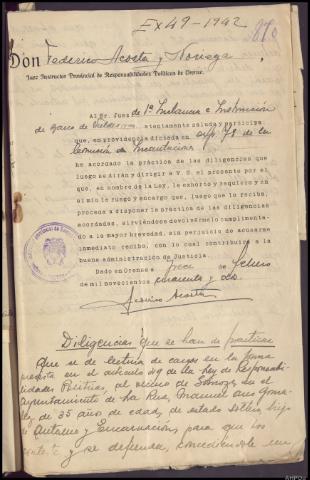 Ex 49-1942
Don Federico Acosta y Noriega
Juez Instructor Provincial de Responsabilidades Políticas de Orense.
Al Sr. Juez de 1ª Instancia e Instrucción
de Barco de Valdeorras, atentamente saluda y participa
que, en providencia dictada en exp. 78 de la
Comisión de Incautaciones
he acordado la práctica de las diligencias que
luego se dirán y dirigir a V. S. el presente por el
que, en nombre de la Ley, le exhorto y requiero y en
el mío le ruego y encargo que, luego que lo reciba,
proceda a disponer la práctica de las diligencias
acordadas, sirviéndose devolvérmelo cumplimenta-
do a la mayor brevedad, sin perjuicio de acusarme
inmediato recibo, con lo cual contribuirá a la
buena administración de Justicia.
Dado en Orense a trece de Febrero
de mil novecientos cuarenta y dos.
Federico Acosta
Diligencias que se han de practicar
Que se de lectura de cargos en la forma
prevista en el artículo 49 de la ley de Responsabi-
lidades Políticas, al vecino de en el
Ayuntamiento de La Rua, Manuel
de 35 año de edad, de estado soltero, hijo
de Antonio y Encarnación, para que los
conteste y se defienda, concediendole un
AHPOu